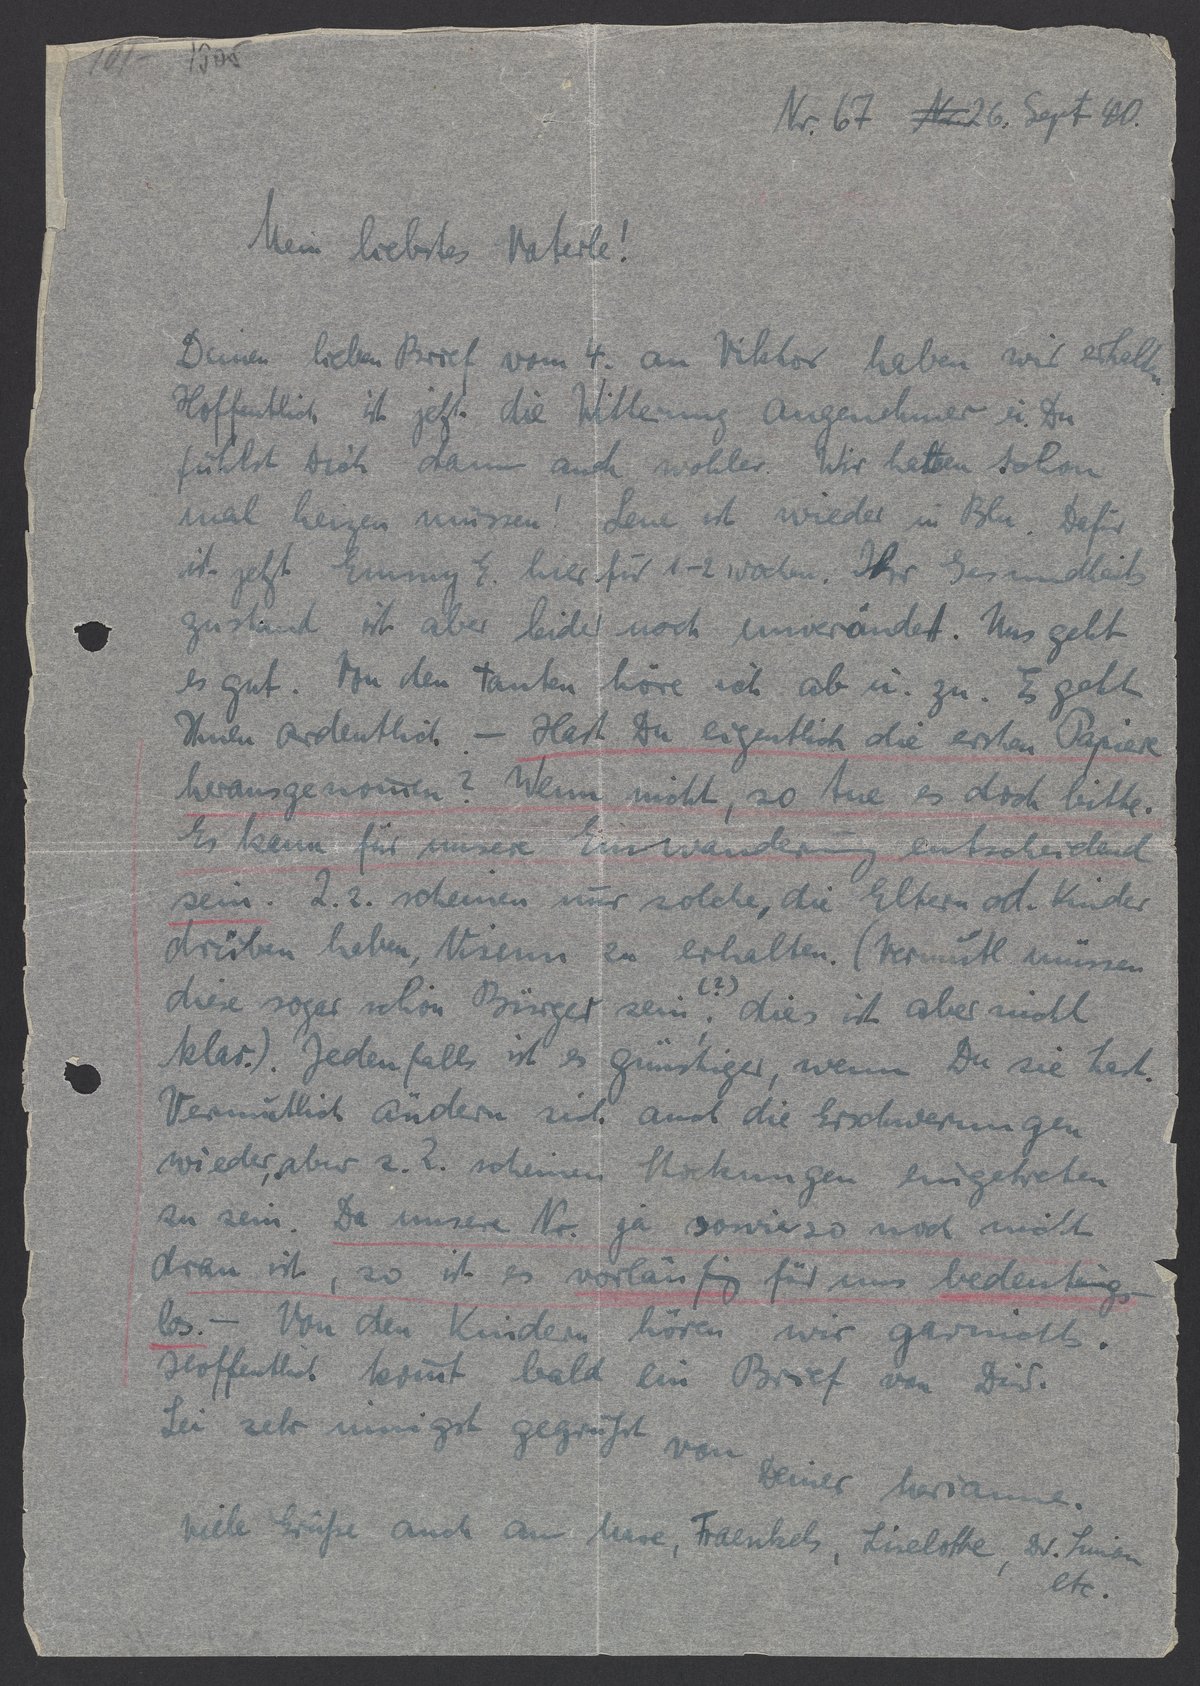 101- 1505
Nr. 67 26. Sept 40.
Mein liebstes Vaterle!
Deinen lieben Brief vom 4. an Viktor haben wir erhalten
Hoffentlich ist jetzt die Witterung angenehmer u. Du
fühlst Dich dann auch wohler. Wir hatten schon
mal heizen müssen! Lene ist wieder in Bln. Dafür
ist jetzt Emmy E. hier für 1-2 Wochen. Ihr Gesundheits
zustand ist aber leider noch unverändert. Uns geht
es gut. Von den Tanten höre ich ab u. zu. Es geht
Ihnen ordentlich. — Hast Du eigentlich die ersten Papiere
herausgenom̅en? Wenn nicht, so tue es doch bitte.
Es kann für unsere Einwanderung entscheidend
sein. Z.Z. scheinen nur solche, die Eltern od. Kinder
drüben haben, Visum zu erhalten. (Vermutl müssen
diese sogar schon Bürger sein(?), dies ist aber nicht
klar.). Jedenfalls ist es günstiger, wenn Du sie hast.
Vermutlich ändern sich auch die Erschwerungen
wieder, aber z.Z. scheinen Stockungen eingetreten
zu sein. Da unsere Nr. ja sowieso noch nicht
dran ist, so ist es vorläufig für uns bedeutungs-
los. — Von den Kindern hören wir garnichts.
Hoffentlich kom̅t bald ein Brief von Dir.
Sei sehr innigst gegrüßt von
Deiner Marianne.
Viele Grüße auch an Fraenkels, Liselotte, Dr. Simon
etc.